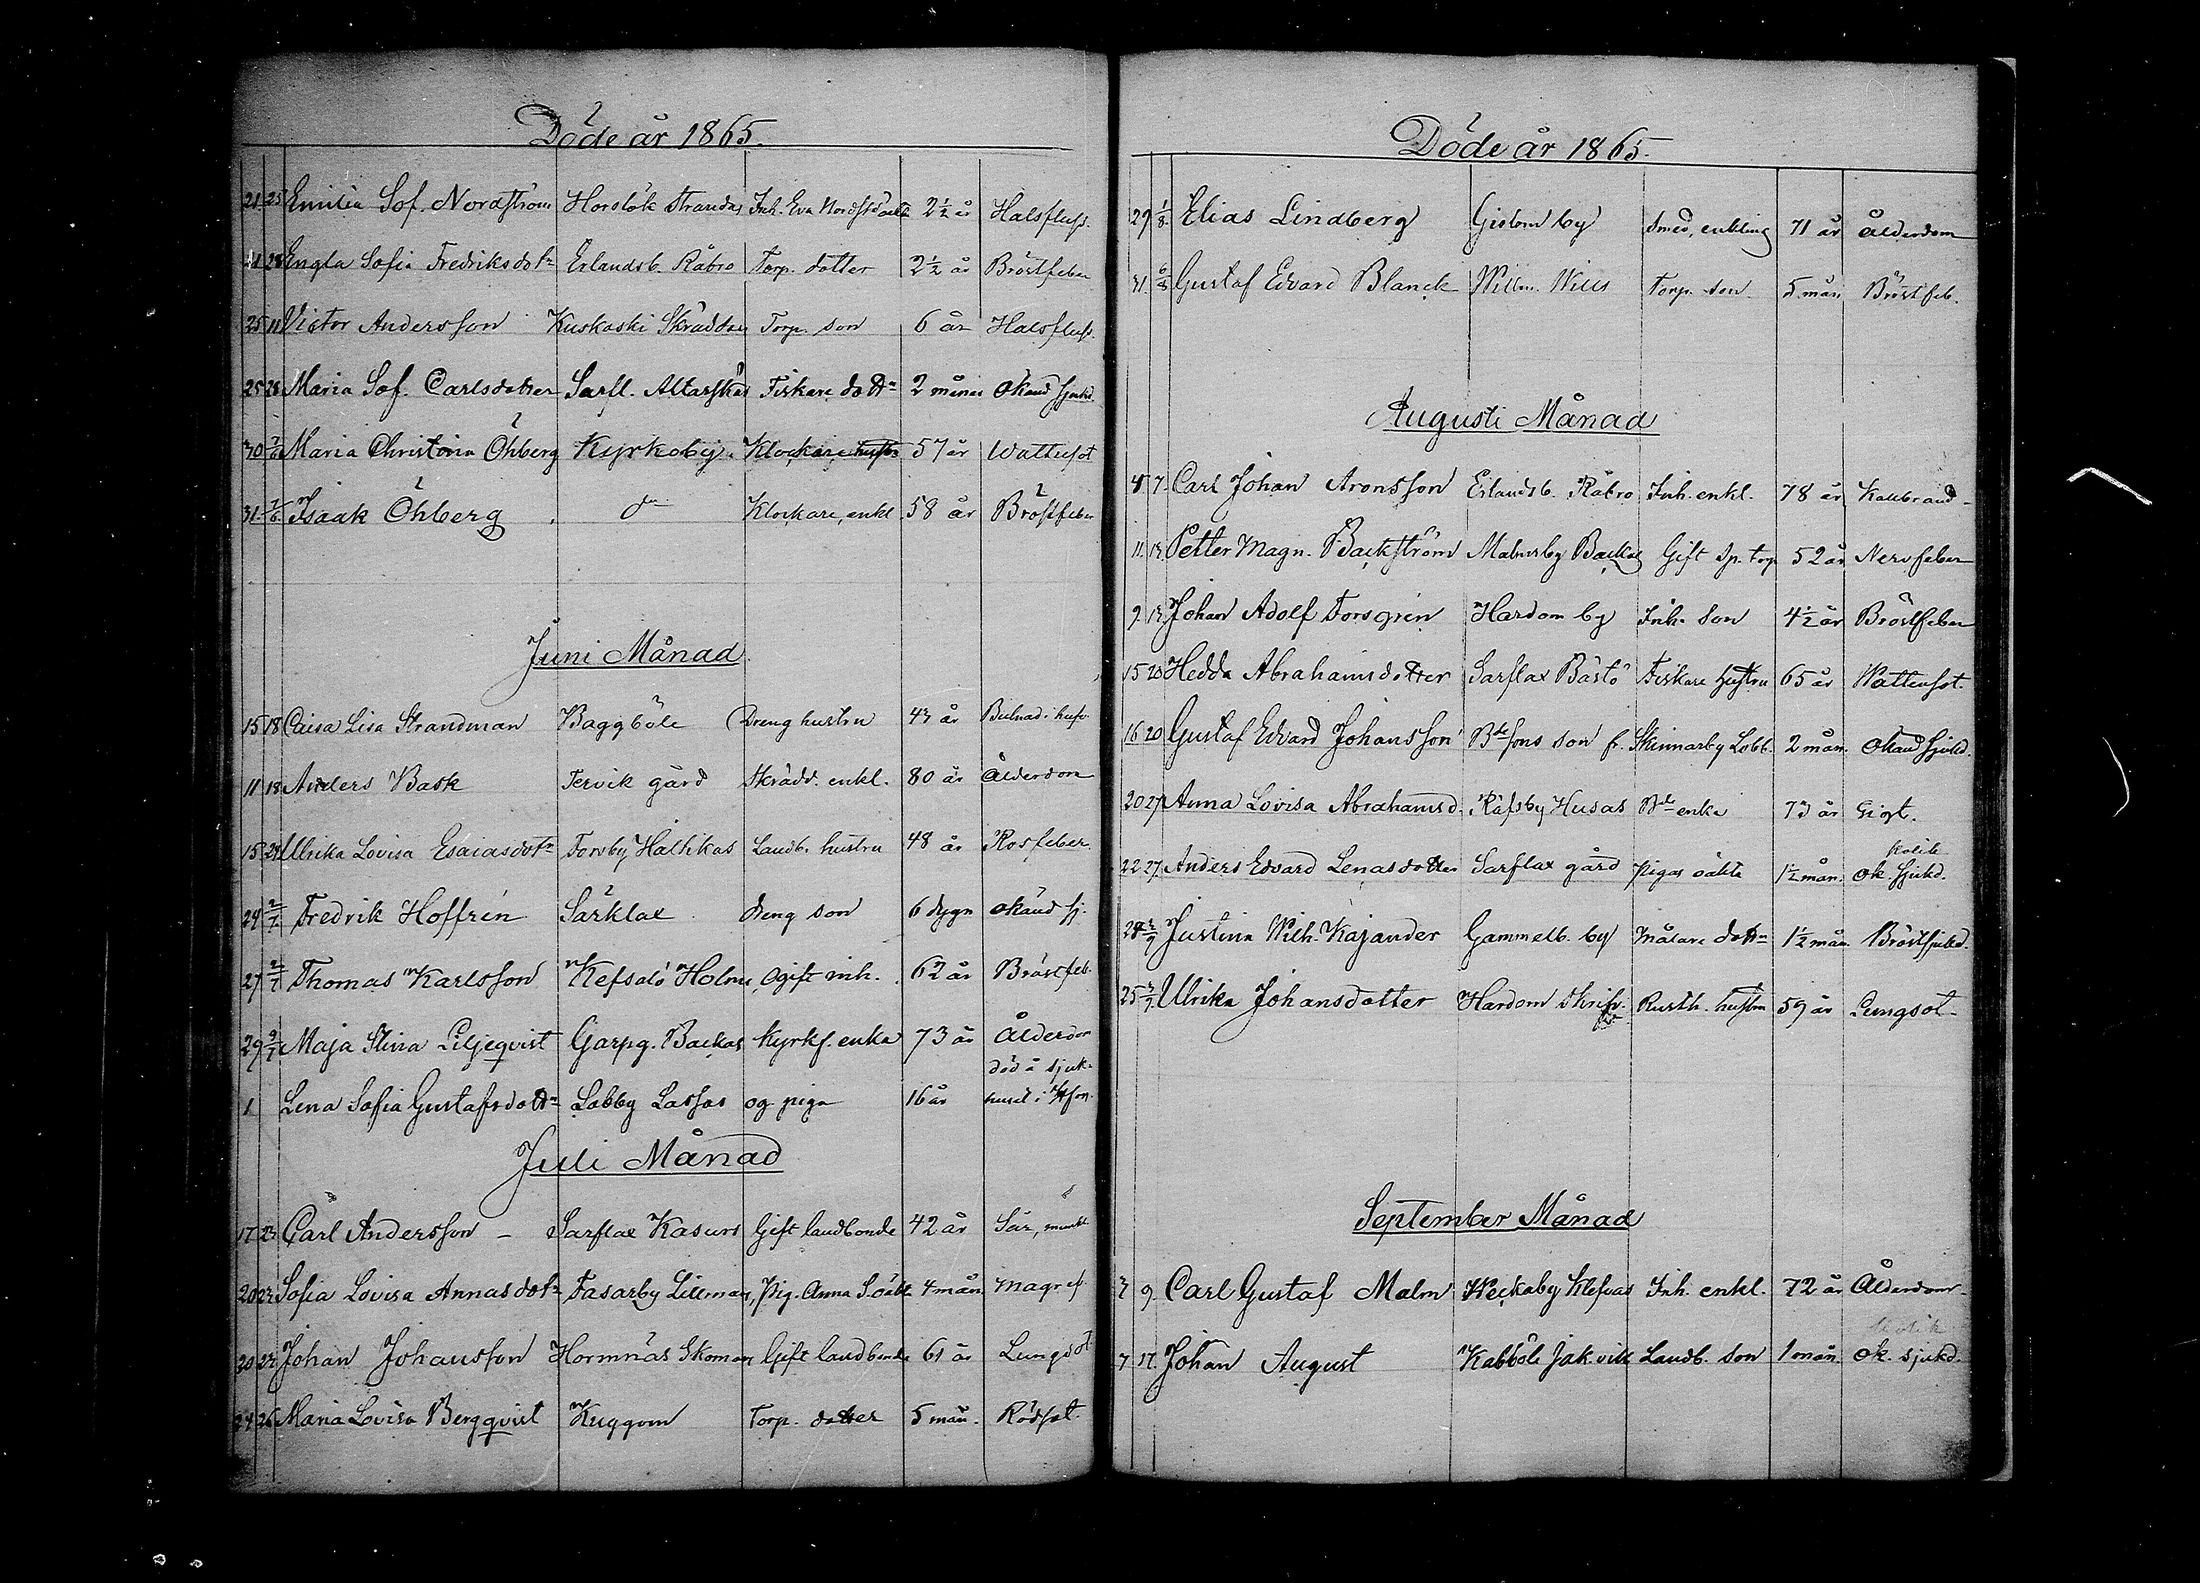 Döde år 1865.
21 25 Emilia Sof. Nordström Horslök Strandas Inh. Eva Nordst. oäkta 2½ år Halsfluss.
21 28 Engla Sofia Fredriksdotr Erlandsb. Råbro Torp. dotter 2½ år Bröstfeber
25 11 Victor Andersson Kuskoski Skräddars Torp. son 6 år Halsfluss.
25 28 Maria Sof. Carlsdotter Sarfl. Altarskär Fiskare dottr 2 månad okänd sjukd.
30 Maria Christina Öhberg Kyrkoby. Klockare hustr 57 år Wattusot
31 Isaak Öhberg do Klockare, enkl. 58 år Bröstfeber
Juni Månad
15 18 Caisa Lisa Strandman Baggböle Dreng hustru 43 år Bulnad i hufv.
11 18 Anders Bask Tervik gård Skrädd. enkl. 80 år Ålderdom
15 24 Ulrika Lovisa Esaiasdotr Forsby Hathkas Landb. hustru 48 år Rosfeber.
24 2/7 Fredrik Hoffrén Särklax Dreng son 6 dygn okänd sj.
27 2/7 Thomas Karlsson Kefsalö Holms Ogift inh. 62 år Bröstfeb.
29 9/7 Maja Stina Liljeqvist Garpg. Backas Kyrkf. enka 73 år Ålderdom
död å sjuk-
1 Lena Sofia Gustafsdottr Labby Lassas og. piga 16 år huset i H:fors.
Juli Månad
17 23 Carl Andersson – Sarflax Kasurs Gift landbonde 42 år Sår,
20 23 Sofia Lovisa Annasdotr Fasarby Lillmans, Pig. Anna S. oäkt. 4 mån magref
20 23 Johan Johansson Hormnäs Skomars Gift landbonde 61 år Lungsot
24 26 Maria Lovisa Bergqvist Kuggom Torp. dotter 5 mån. Rödsot.
Döde år 1865.
29 1/8 Elias Lindberg Gislom by Smed, enkling 71 år Ålderdom
31 6/8 Gustaf Edvard Blanck Willm. Wills Torp. son 5 mån Bröstfeb.
Augusti Månad
4 7 Carl Johan Aronsson Erlandsb. Råbro Inh. enkl. 78 år Kallbrand.
11 13 Petter Magn. Backström Malmsby Backas Gift Sp. torp 52 år Nervfeber
9 13 Johan Adolf Forsgrén Hardom by Inh. Son 4½ år Bröstfeber
15 20 Hedda Abrahamsdotter Sarflax Båstö Fiskare hustru 65 år Wattensot.
16 20 Gustaf Edvard Johansson Bdesons son fr. Skinnarby Lobb. 2 mån. Okänd sjukd.
20 27 Anna Lovisa Abrahamsd. Räfsby Husas Bde enka 73 år Gigt.
kolik
22 27 Anders Edvard Lenasdotter Sarflax gård Pigas oäkta 1½ mån. ok. sjukd.
28 3/9 Justina Wilh. Kajander Gammelb. by Målare dottr 1½ mån Bröstsjukd.
25 3/9 Ulrika Johansdotter Hardom Skrifv. Rusth. hustru 59 år Lungsot.
September Månad
3 9 Carl Gustaf Malm Weckoby Klefvas Inh. enkl. 72 år Ålderdom.
kolik
7 17 Johan August Kabböle Jakvik Landb. son 1 mån. ok. sjukd.